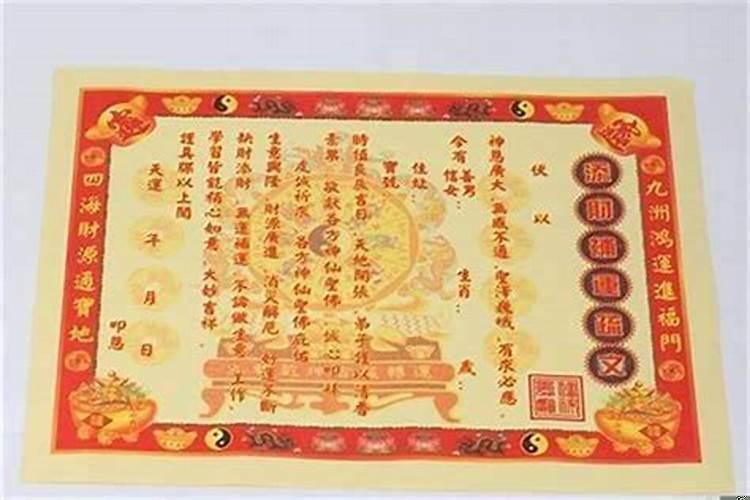 九洲鴻運進福門
添財補運疏文
伏以
神恩廣大 無感不通 聖澤巍峨 有求必應
今有善男信女： 生肖： 歲：
住址：
寶號
時值良辰吉日 天地開張 弟子僅以清香
素果 敬獻各方神仙聖佛 誠心叩拜
虔誠祈求 各方神仙聖佛庇佑
生意興隆 財源廣進 消災解厄 好運不斷
缺財添財 無運補運 不論做生意 工作、
學習皆能稱心如意 大妙吉祥
謹具疏以上聞
天運 年 月 日 叩恩
四海財源通寶地